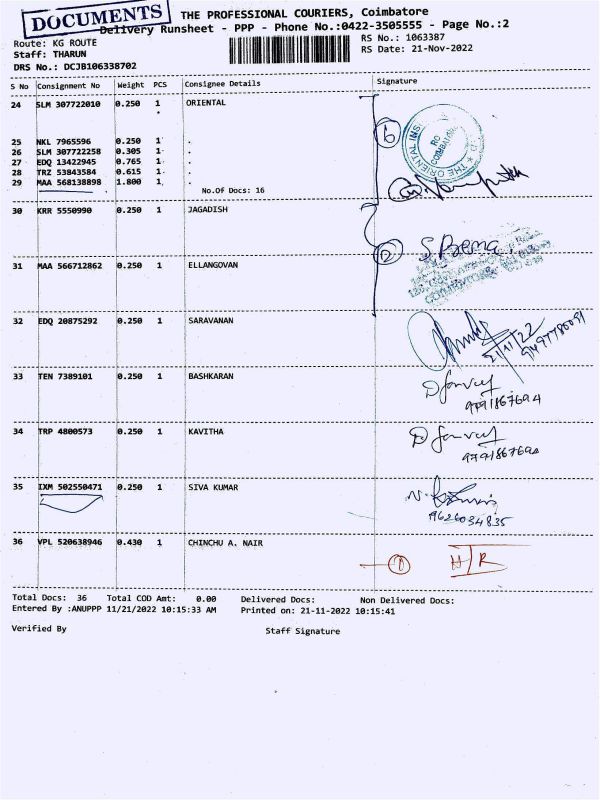 DOCUMENTS
THE PROFESSIONAL COURIERS, Coimbatore
Delivery Runsheet - PPP - Phone No.:0422-3505555 - Page No.:2
Route: KG ROUTE
RS No.: 1063387
Staff: THARUN
RS Date: 21-Nov-2022
DRS No.: DCJB106338702
S No Consignment No Weight PCS Consignee Details Signature
24 SLM 307722010 0.250 1 ORIENTAL
25 NKL 7965596 0.250 1 .
26 SLM 307722258 0.305 1 .
27 EDQ 13422945 0.765 1 .
28 TRZ 53843584 0.615 1 .
29 MAA 568138898 1.800 1 .
No.Of Docs: 16
30 KRR 5550990 0.250 1 JAGADISH
31 MAA 566712862 0.250 1 ELLANGOVAN
32 EDQ 20875292 0.250 1 SARAVANAN
21/11/22
33 TEN 7389101 0.250 1 BASHKARAN
34 TRP 4800573 0.250 1 KAVITHA
35 IXM 502550471 0.250 1 SIVA KUMAR
9626034835
36 VPL 520638946 0.430 1 CHINCHU A. NAIR
Total Docs: 36 Total COD Amt: 0.00 Delivered Docs: Non Delivered Docs:
Entered By :ANUPPP 11/21/2022 10:15:33 AM Printed on: 21-11-2022 10:15:41
Verified By Staff Signature